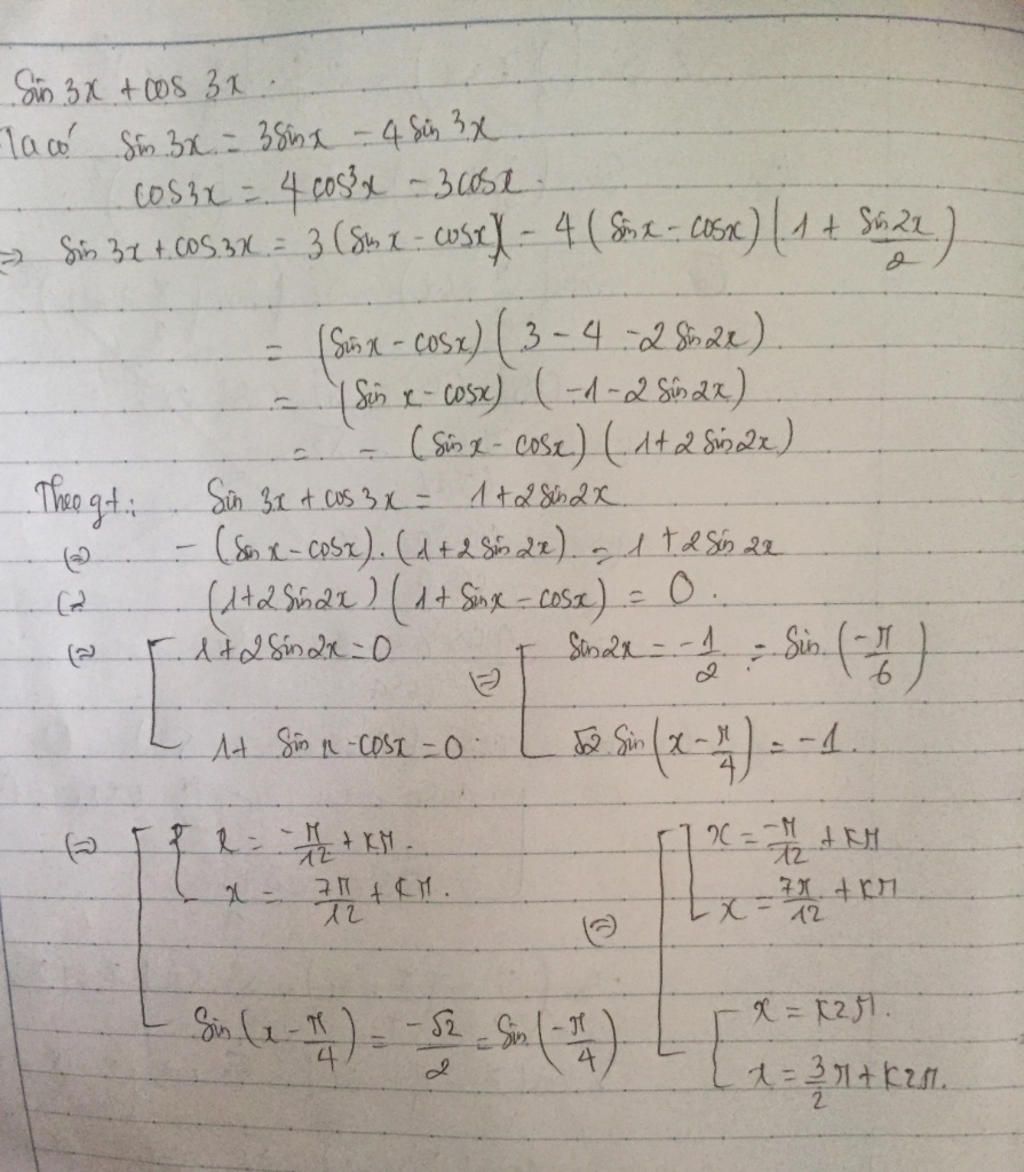 Sin 3x + cos 3x.
Ta có Sin 3x = 3sinx - 4 Sin³x
cos3x = 4cos³x - 3cosx.
=> Sin 3x + cos3x = 3(sinx - cosx) - 4(Sinx - cosx)(1 + Sin2x/2)
= (Sinx - cosx)(3 - 4 - 2Sin2x)
= (Sin x - cosx).(-1 - 2Sin2x)
= - (Sinx - cosx)(1 + 2Sin2x)
Theo gt: Sin 3x + cos 3x = 1 + 2Sin2x
(=) - (Sinx - cosx).(1 + 2Sin 2x) = 1 + 2Sin 2x
(=) (1 + 2Sin2x)(1 + Sinx - cosx) = 0.
(=) [ 1 + 2Sin2x = 0 (=) [ Sin2x = -1/2 = Sin (-π/6)
1 + Sin x - cosx = 0. √2 Sin(x - π/4) = -1.
(=) [ { x = -π/12 + kπ. [ [ x = -π/12 + kπ
x = 7π/12 + kπ. (=) x = 7π/12 + kπ
Sin(x - π/4) = -√2/2 = Sin(-π/4) [ x = k2π.
x = 3/2 π + k2π.